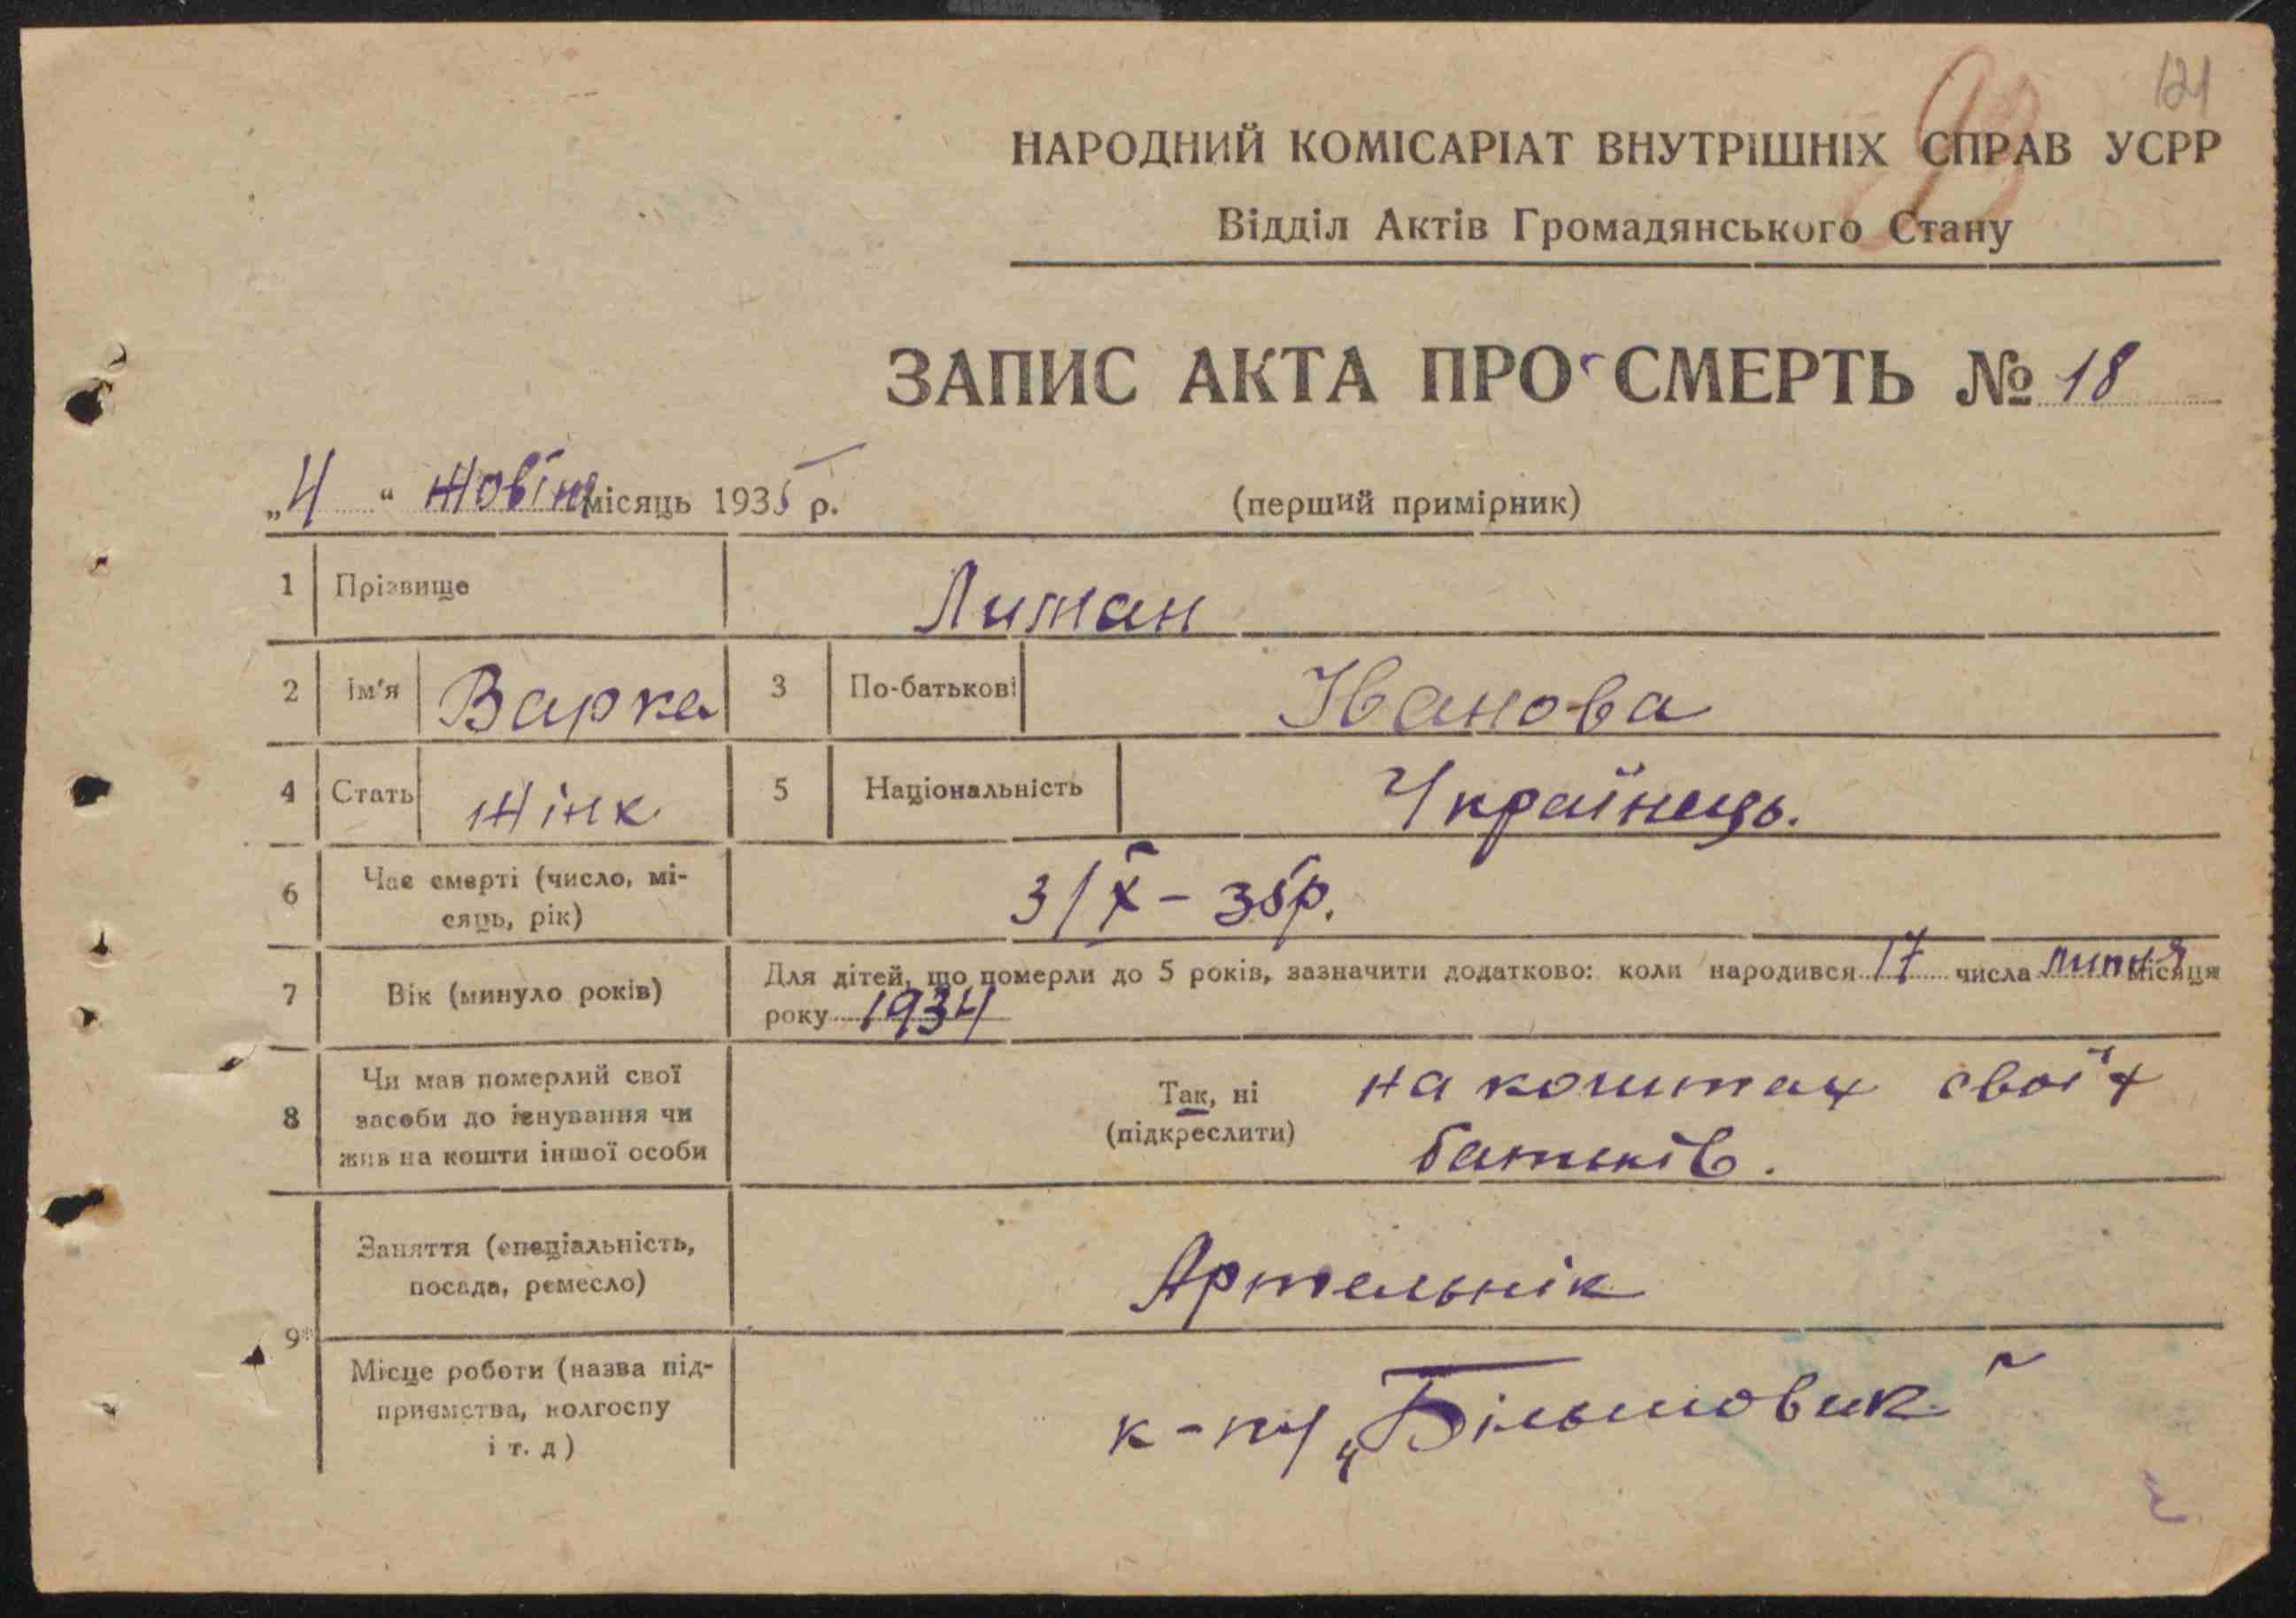 121
93
НАРОДНИЙ КОМІСАРІАТ ВНУТРІШНІХ СПРАВ УСРР
Відділ Актів Громадянського Стану
ЗАПИС АКТА ПРО СМЕРТЬ № 18
„4“ Жовтня місяць 1935 р.
(перший примірник)
1 Прізвище Лиман
2 Ім'я Варка 3 По-батькові Іванова
4 Стать жінк 5 Національність Українець.
6 Час смерті (число, мі-
сяць, рік) 3/X – 35р.
7 Вік (минуло років) Для дітей, що померли до 5 років, зазначити додатково: коли народився 17 числа липня місяця
року 1934
8 Чи мав померлий свої
засоби до існування чи
жив на кошти іншої особи
Так, ні
(підкреслити)
на коштах своїх
батьків.
9 Заняття (спеціальність,
посада, ремесло) Артельнік
Місце роботи (назва під-
приємства, колгоспу
і т. д)
к-пу „Більшовик“